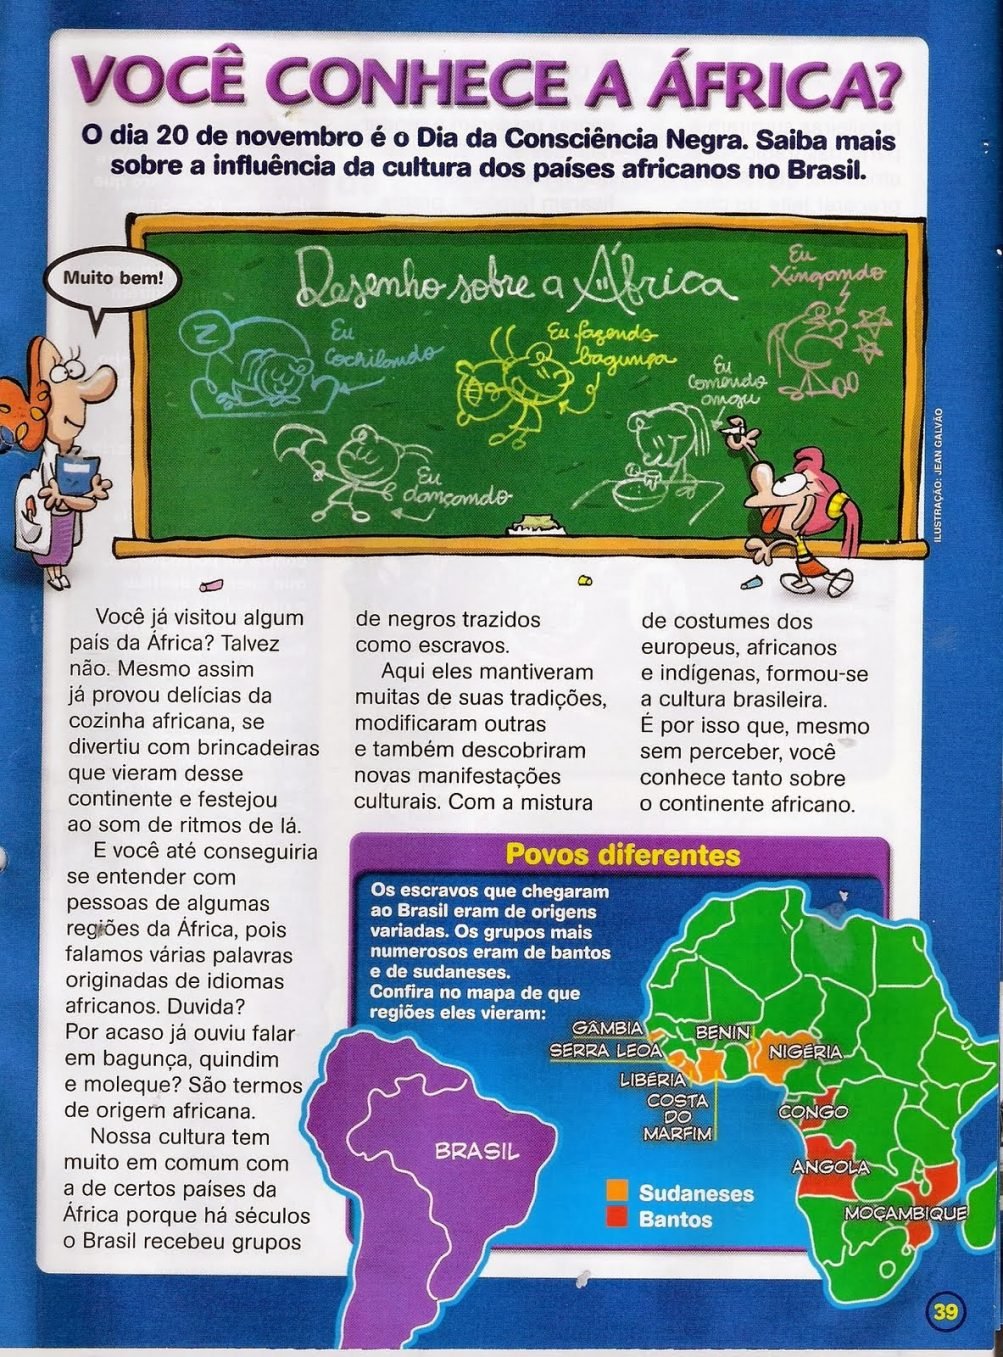 VOCÊ CONHECE A ÁFRICA?
O dia 20 de novembro é o Dia da Consciência Negra. Saiba mais
sobre a influência da cultura dos países africanos no Brasil.
Muito bem!
Desenho sobre a África
Eu
Xingando
Z
Eu
Cochilando
Eu fazendo
bagunça
Eu
Comendo
angu
Eu
dançando
ILUSTRAÇÃO: JEAN GALVÃO
Você já visitou algum
país da África? Talvez
não. Mesmo assim
já provou delícias da
cozinha africana, se
divertiu com brincadeiras
que vieram desse
continente e festejou
ao som de ritmos de lá.
E você até conseguiria
se entender com
pessoas de algumas
regiões da África, pois
falamos várias palavras
originadas de idiomas
africanos. Duvida?
Por acaso já ouviu falar
em bagunça, quindim
e moleque? São termos
de origem africana.
Nossa cultura tem
muito em comum com
a de certos países da
África porque há séculos
o Brasil recebeu grupos
de negros trazidos
como escravos.
Aqui eles mantiveram
muitas de suas tradições,
modificaram outras
e também descobriram
novas manifestações
culturais. Com a mistura
de costumes dos
europeus, africanos
e indígenas, formou-se
a cultura brasileira.
É por isso que, mesmo
sem perceber, você
conhece tanto sobre
o continente africano.
Povos diferentes
Os escravos que chegaram
ao Brasil eram de origens
variadas. Os grupos mais
numerosos eram de bantos
e de sudaneses.
Confira no mapa de que
regiões eles vieram:
GÂMBIA
SERRA LEOA
LIBÉRIA
COSTA
DO
MARFIM
BENIN
NIGÉRIA
CONGO
ANGOLA
MOÇAMBIQUE
BRASIL
Sudaneses
Bantos
39